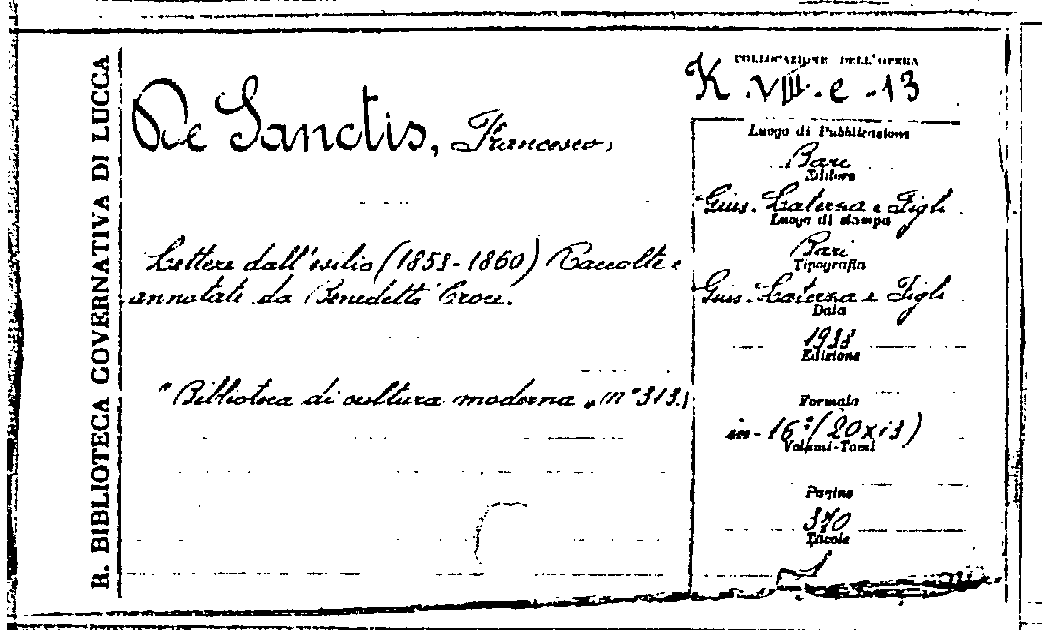 R. BIBLIOTECA GOVERNATIVA DI LUCCA
De Sanctis, Francesco,
Lettere dall'esilio (1853-1860) Raccolte e
annotate da Benedetto Croce.
"Biblioteca di cultura moderna" n° 313.)
COLLOCAZIONE DELL'OPERA
K. VIII. e. 13
Luogo di Pubblicazione
Bari
Editore
Gius. Laterza e Figli
Luogo di stampa
Bari
Tipografia
Gius. Laterza e Figli
Data
1938
Edizione
Formato
in-16° (20x13)
Volumi-Tomi
Pagine
370
Tavole